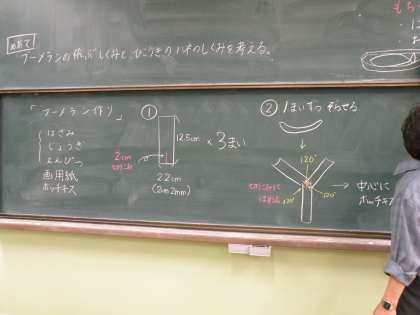 めあて
ブーメランの飛ぶしくみとひこうきのハネのしくみを考える。
もち
「ブーメラン作り」
はさみ
じょうぎ
えんぴつ
画用紙
ホッチキス
①
12.5cm × 3まい
2cm
切りこみ
2.2cm
(2cm2mm)
② 1まいずつそらせる
120°
120°
120°
切りこみに
はめこむ
→ 中心に
ホッチキス